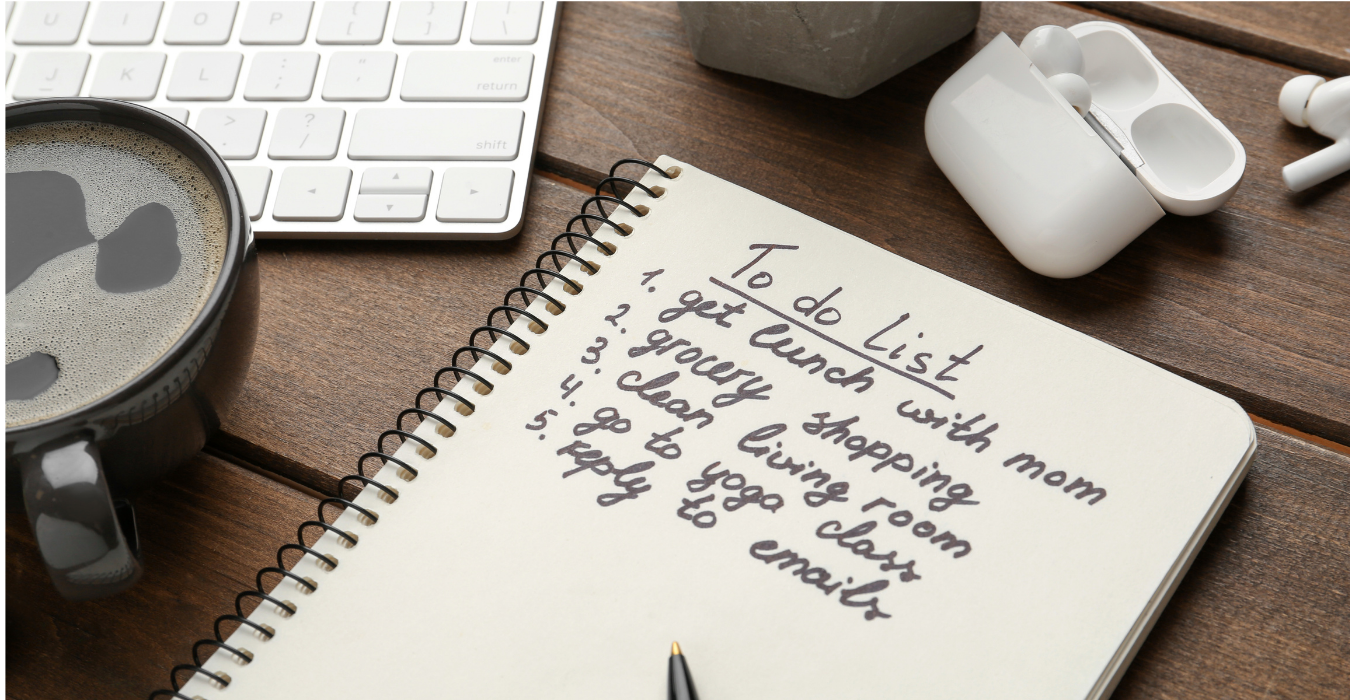 U I O P { [ } ] | \
J K L : ; " ' enter return
> . ? / shift
To do List
1. get lunch with mom
2. grocery shopping
3. clean living room
4. go to yoga class
5. reply to emails